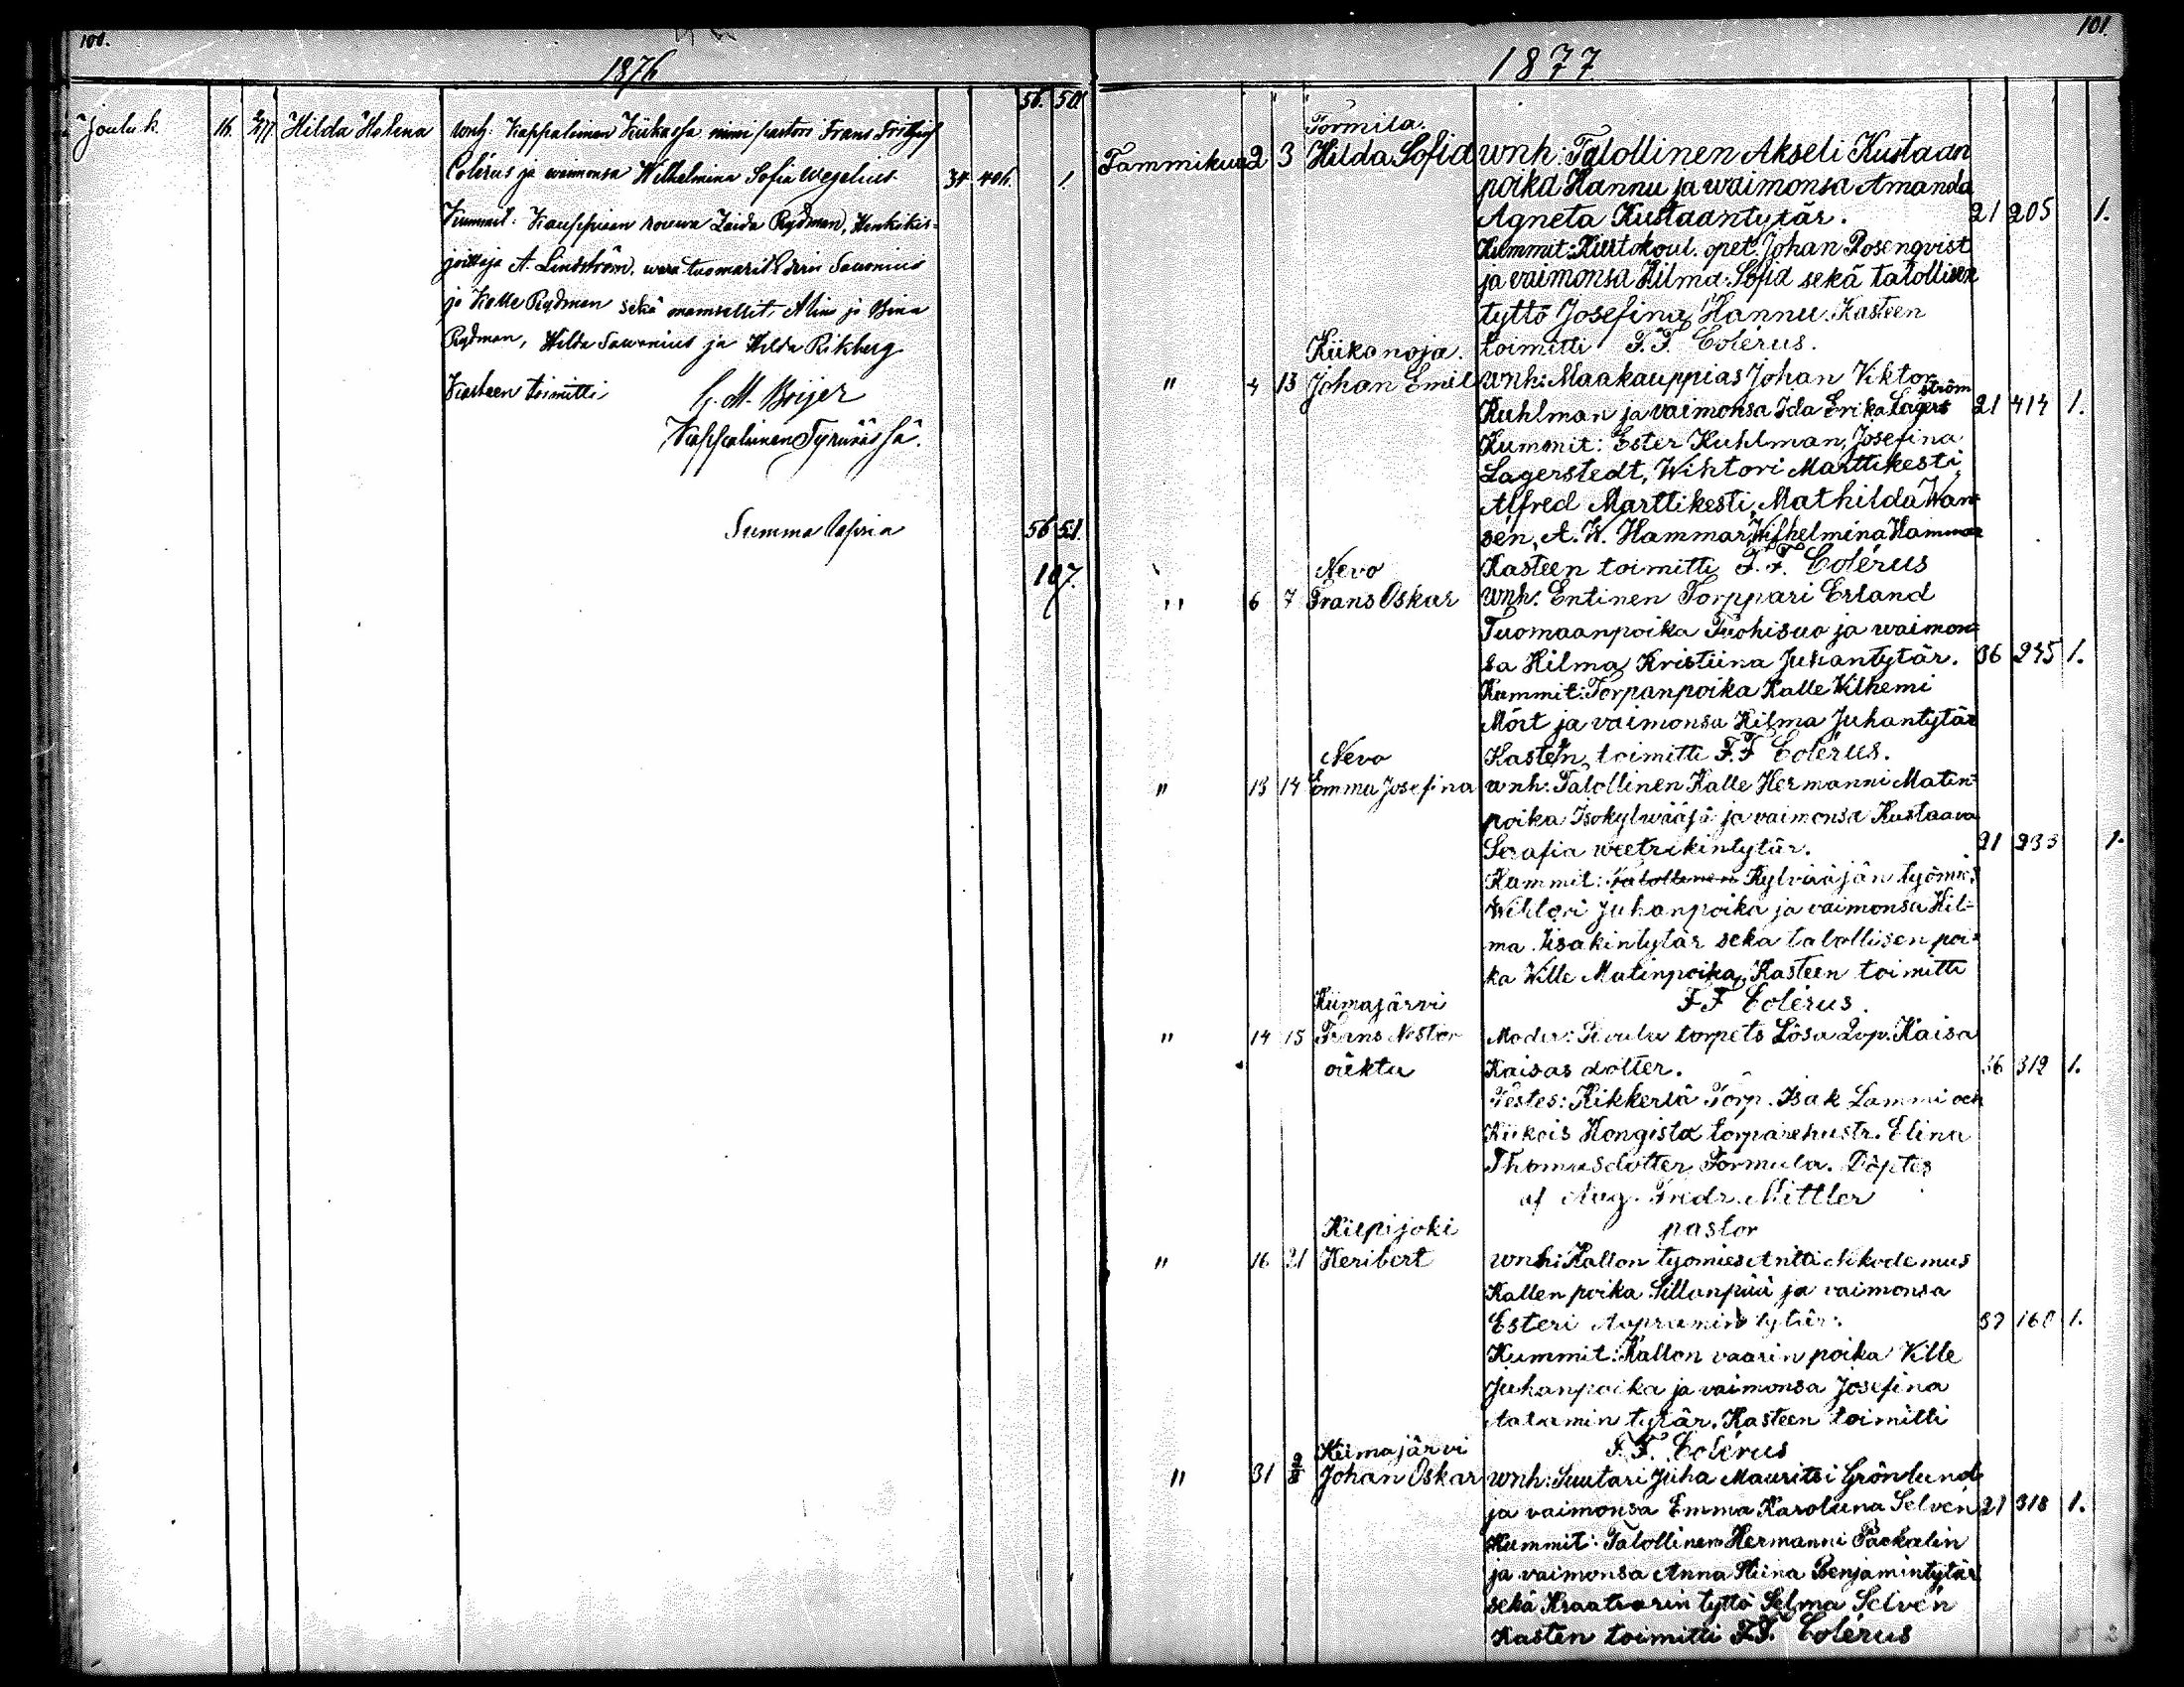 100.
1876
56. 50.
Jouluk. 16. 2/1 77. Hilda Helena wnh: Kappalainen Kiikassa nimi pastori Frans Fritjof
Colérus ja waimonsa Wilhelmina Sofia Wegelius 34 406. 1.
Kummit: Kauppiaan rouwa Zaida Rydman, Henkikir=
joittaja A. Lindström, wara-tuomarit Edvin Sawonius
ja Kalle Rydman sekä mamsellit, Alina ja Bina
Rydman, Hilda Sawonius ja Hilda Rikberg
Kasteen toimitti G. M. Boijer
Kappalainen Tyrväässä.
Summa 56 51.
107.
101.
1877
Tormila.
Tammikuu 2 3 Hilda Sofia wnh: Talollinen Akseli Kustaan
poika Hannu ja waimonsa Amanda
Agneta Kustaantytär. 21 205 1.
Kummit: Kiertokoul. opet. Johan Rosenqvist
ja vaimonsa Hilma Sofia sekä talollisen
tyttö Josefina Hannu. Kasteen
Kiikanoja. toimitti F.F. Colérus.
" 4 13 Johan Emil wnh: Maakauppias Johan Viktor
Kuhlman ja vaimonsa Ida Erika Lagerström 21 414 1.
Kummit: Ester Kuhlman, Josefina
Lagerstedt, Wihtori Marttikesti,
Alfred Marttikesti, Mathilda Wan=
sen, A. W. Hammar, Wilhelmina Hammar
Nevo Kasteen toimitti F. F. Colérus
" 6 7 Frans Oskar wnh. Entinen Torppari Erland
Tuomaanpoika Tuohisuo ja waimon=
sa Hilma Kristiina Juhantytär. 36 245 1.
Kummit: Torpanpoika Kalle Vilhemi
Mört ja vaimonsa Hilma Juhantytär
Nevo Kasten toimitti F.F Colérus.
" 13 14 Emma Josefina wnh: Talollinen Kalle Hermanni Matin=
poika Isokylwääjä ja vaimonsa Kustaava
Serafia weetrikintytär. 21 233 1.
Kummit: Talollinen Kylvääjän työmies
Wihtori Juhanpoika ja vaimonsa Hil=
ma Iisakintytär sekä talollisen poi=
ka Ville Matinpoika, Kasteen toimitti
Kiimajärvi F F Colérus.
" 14 15 Frans Nestor Moder: torpets Lösa Qvp. Kaisa
oäkta Kaisas dotter. 36 312 1.
Testes: Kikkerlä Torp. Isak Lammi och
Kiikois Hongista torparehustr. Elina
Thomasdotter Tormula. Döptes
af Aug. Fredr. Mittler
Kiepijoki pastor
" 16 21 Heribert wnh: Kallon työmies Antti Nikodemus
Kallen poika Sillanpää ja vaimonsa
Esteri Aapramin tytär. 37 160 1.
Kummit: Kallon vaarin poika Ville
Juhanpoika ja vaimonsa Josefina
Aatamin tytär. Kasteen toimitti
Kiimajärvi F. F. Colérus
" 31 Johan Oskar wnh: Suutari Juha Mauritsi Grönlund
ja vaimonsa Emma Karoliina Selvén 21 318 1.
Kummit: Talollinen Hermanni Packalin
ja vaimonsa Anna Stiina Benjamintytär
sekä Kraatarin tyttö Selma Selvén
Kasten toimitti F.F. Colérus
5 2